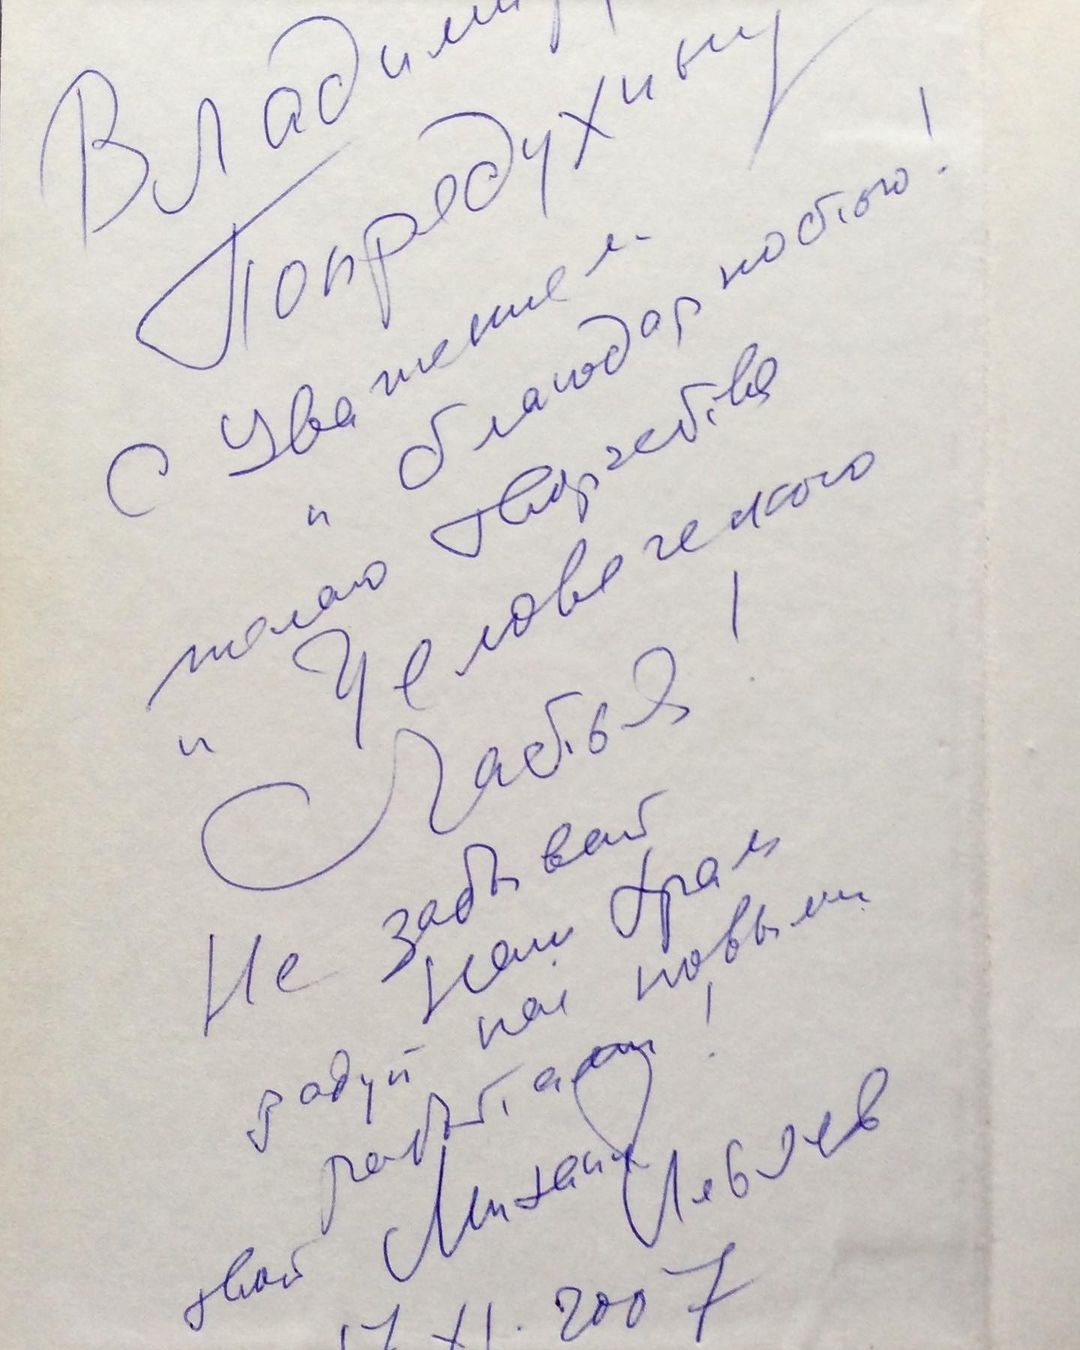 Владимиру
Попрядухину
С уважением
и благодарностью!
желаю творчества
и Человеческого
Счастья!
Не забывай
наш Храм
радуй нас новыми
работами!
твой Михаил
17.XI.2007